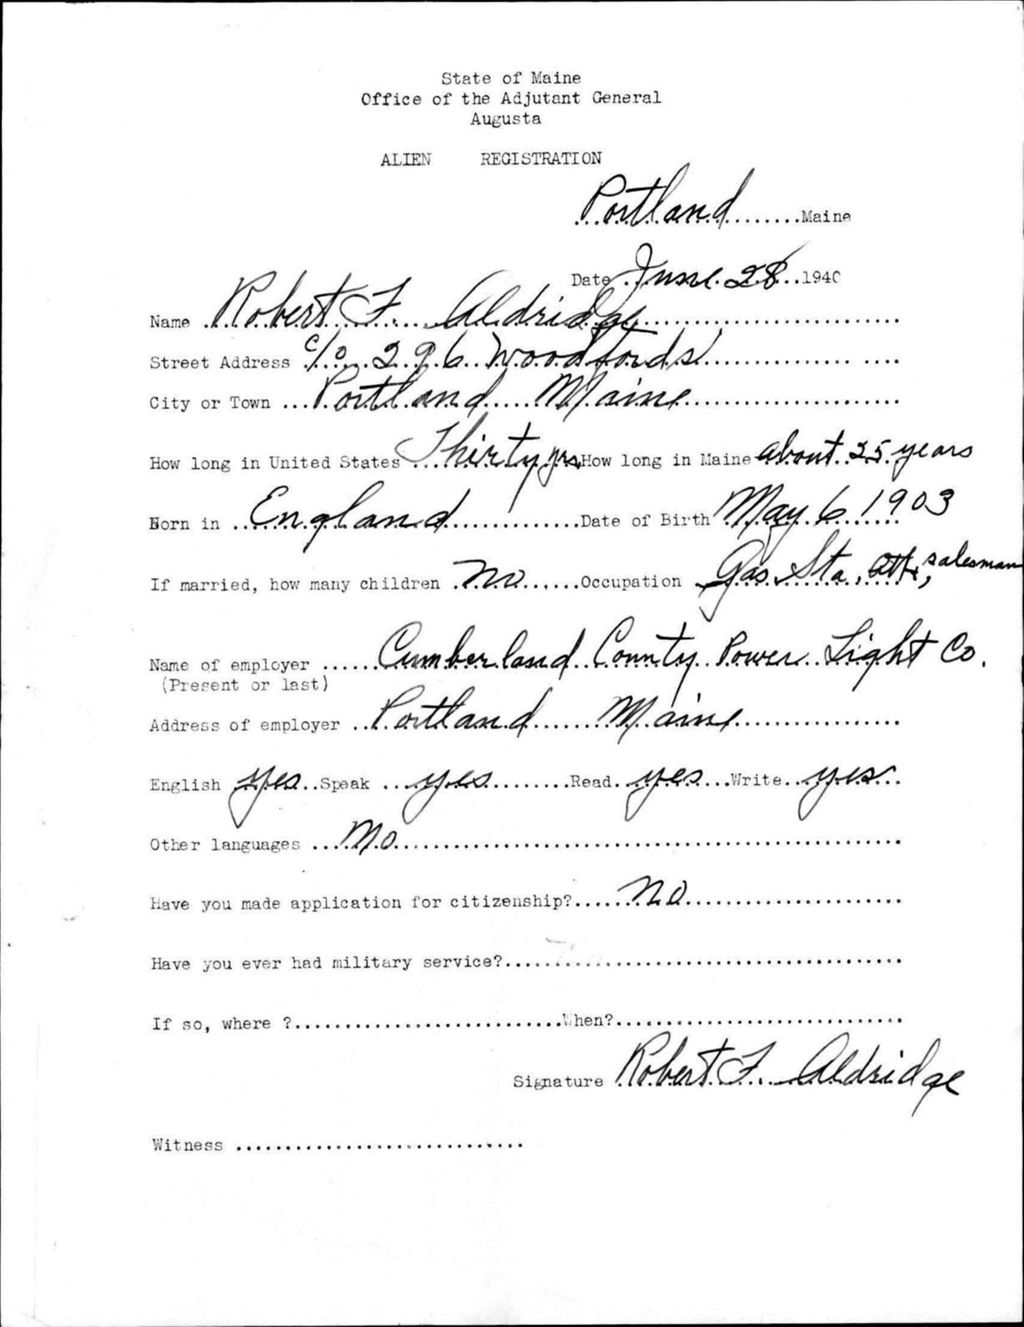 State of Maine
Office of the Adjutant General
Augusta
ALIEN REGISTRATION
Portland Maine
Date June 28 1940
Name Robert F. Aldridge
Street Address c/o 296 Woodfords
City or Town Portland Maine
How long in United States Thirty yrs How long in Maine about 25 years
Born in England Date of Birth May 6 1903
If married, how many children No Occupation Gas Sta. Att, salesman
Name of employer Cumberland County Power Light Co.
(Present or last)
Address of employer Portland Maine
English yes Speak yes Read yes Write yes
Other languages No
Have you made application for citizenship? No
Have you ever had military service?
If so, where ? When?
Signature Robert F. Aldridge
Witness